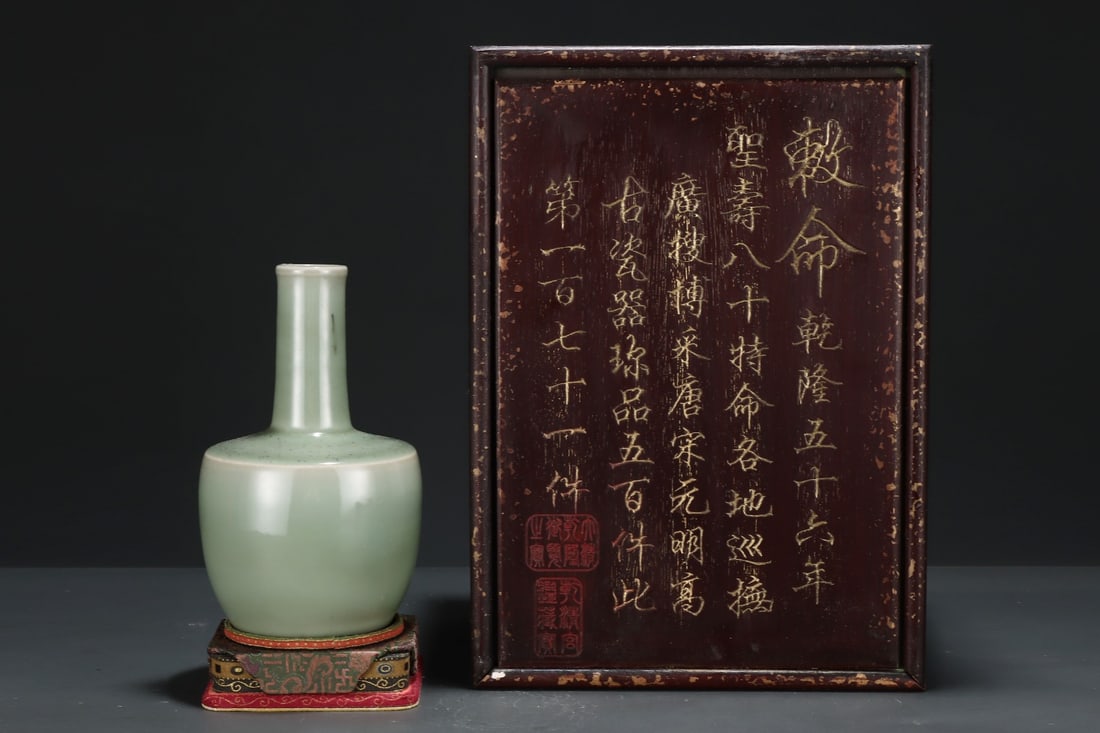 敕命乾隆五十六年
聖壽八十特命各地巡撫
廣搜摶采唐宋元明窩
古瓷器珎品五百件此
第一百七十一件